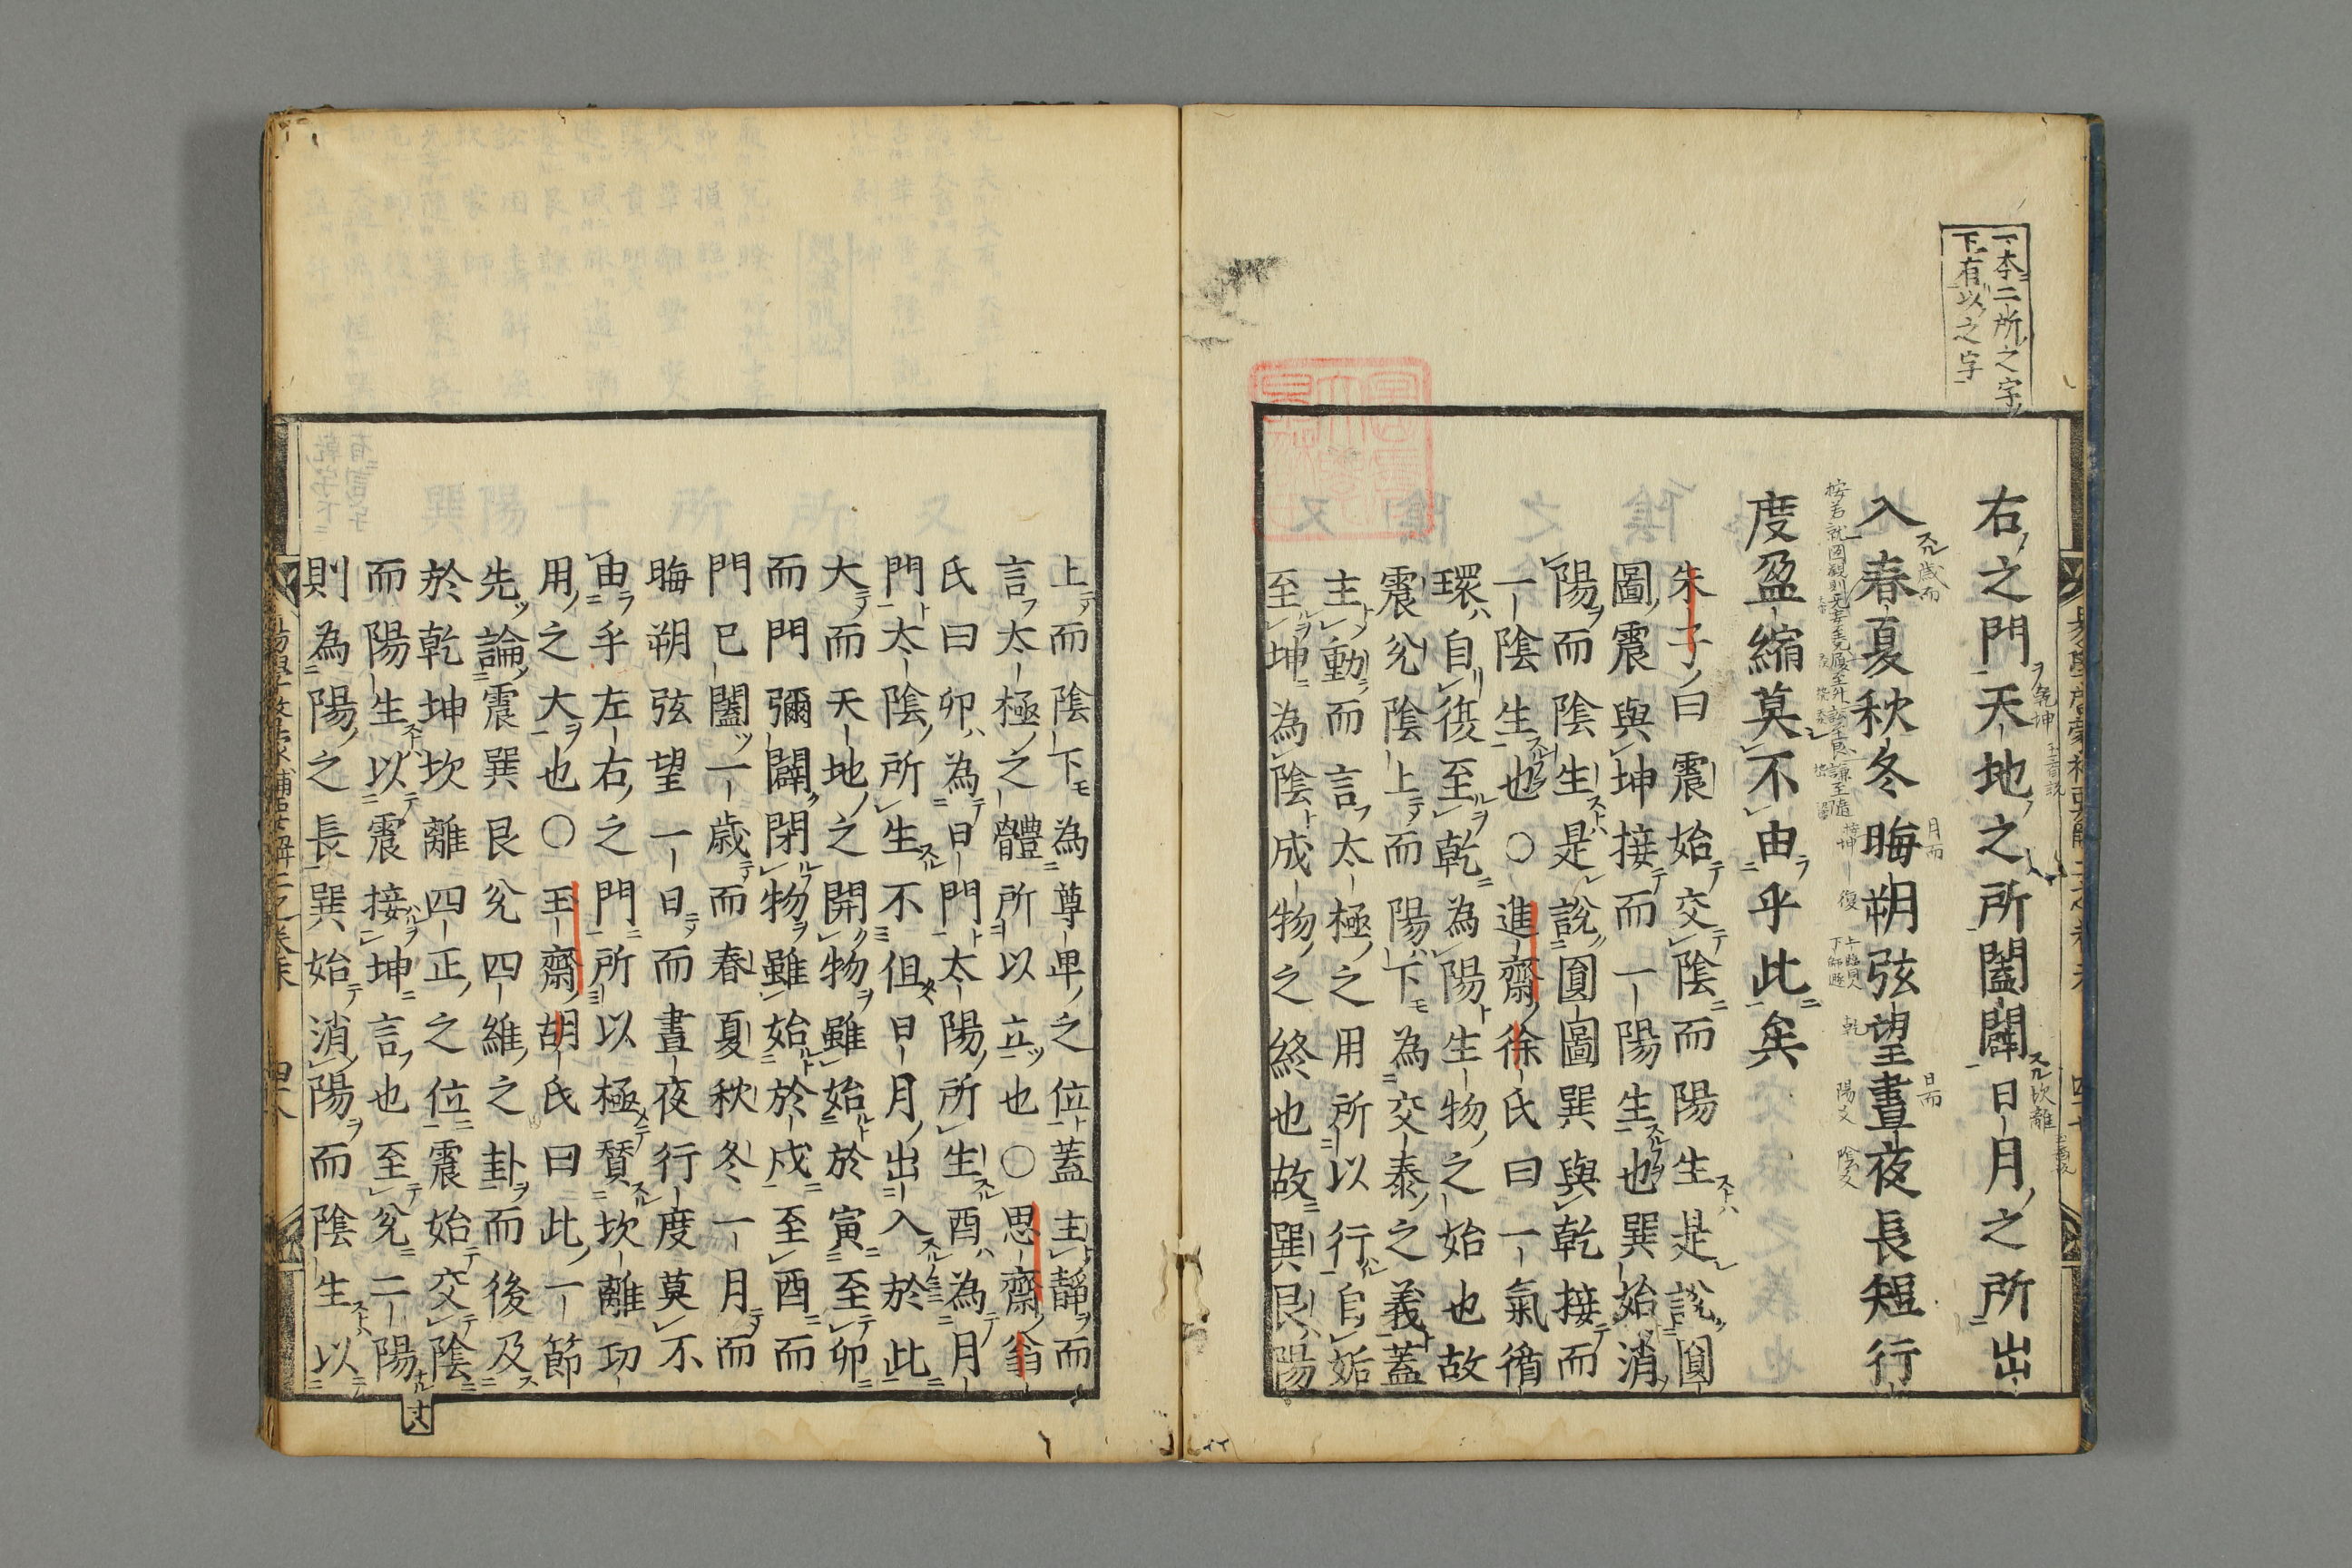 一本二所之字
下有以之字
右之門天地之所闔闢日月之所出
乾坤
坎離
入春夏秋冬晦朔弦望晝夜長短行
歳而
月而
日而
度盈縮莫不由乎此矣
朱子曰震始交陰而陽生是說圓
圖震與坤接而一陽生也巽始消
陽而陰生是說圓圖巽與乾接而
一陰生也○進齋徐氏曰一氣循
環自復至乾為陽生物之始也故
震兊陰上而陽下為交泰之義蓋
主動而言太極之用所以行自姤
至坤為陰成物之終也故巽艮陽
上而陰下為尊卑之位蓋主靜而
言太極之體所以立也○思齋翁
氏曰卯為日門太陽所生酉為月
門太陰所生不但日月出入於此
大而天地之開物雖始於寅至卯
而門彌闢閉物雖始於戍至酉而
門已闔一歳而春夏秋冬一月而
晦朔弦望一日而晝夜行度莫不
由乎左右之門所以極賛坎離功
用之大也○王齋胡氏曰此一節
先論震巽艮兊四維之卦而後及
於乾坤坎離四正之位震始交陰
而陽生以震接坤言也至兊二陽
則為陽之長巽始消陽而陰生以